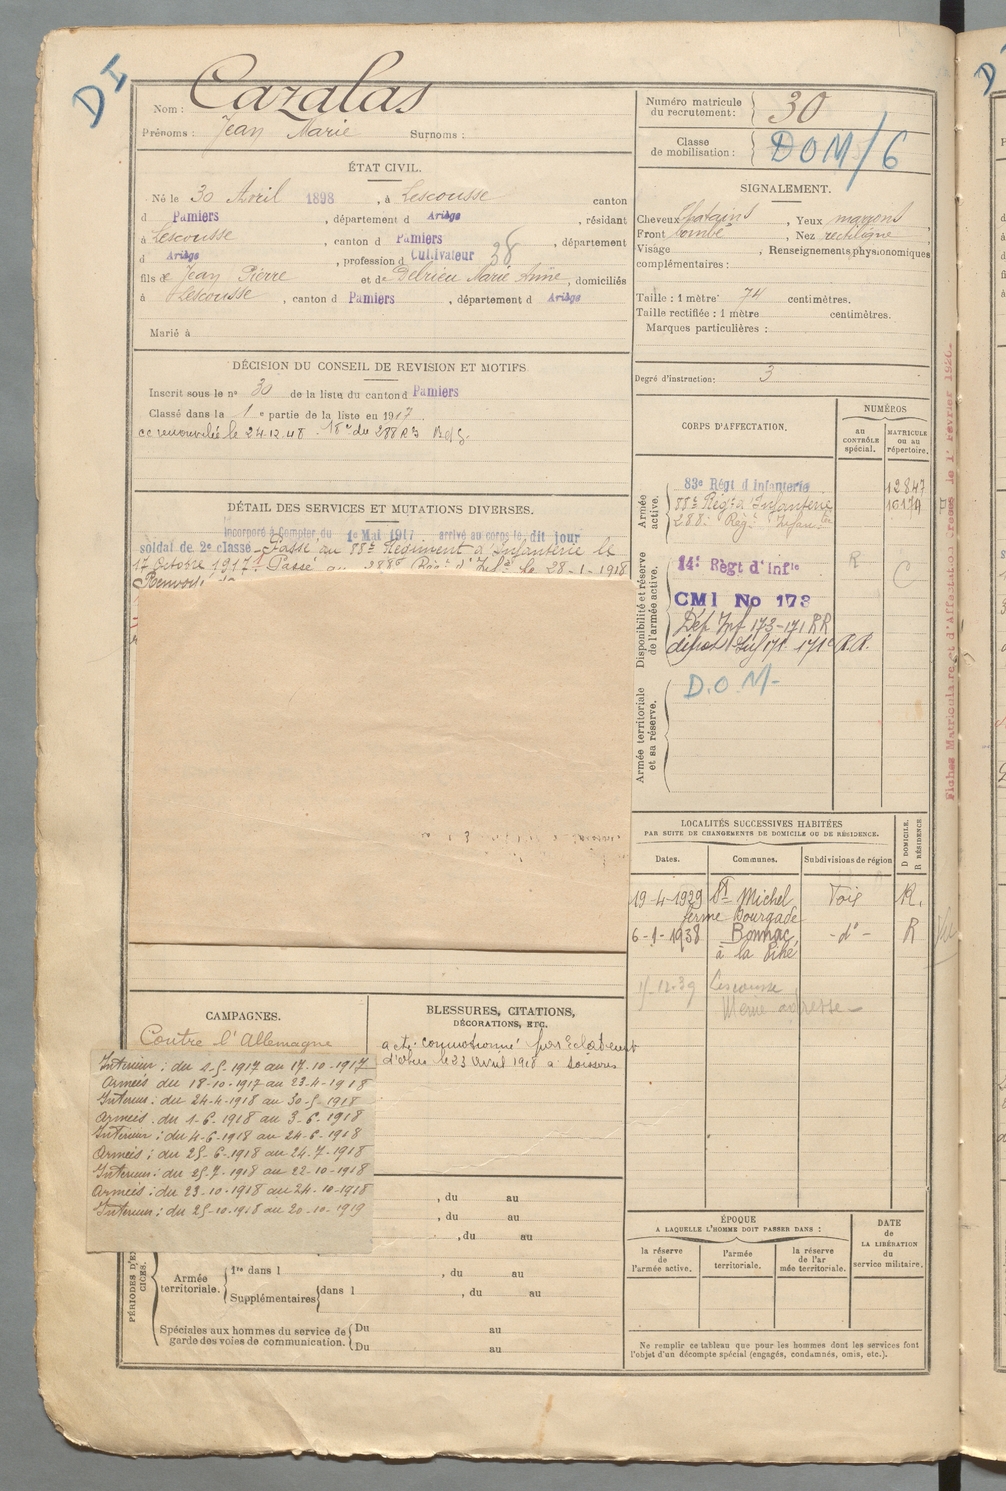 DI
Nom : Cazalas
Prénoms : Jean Marie Surnoms :
ÉTAT CIVIL.
Né le 30 Avril 1898, à Lescousse canton
d Pamiers, département d Ariège, résidant
à Lescousse, canton d Pamiers, département
d Ariège, profession d Cultivateur 38
fils de Jean Pierre et de Delrieu Marie Anne, domiciliés
à Lescousse, canton d Pamiers, département d Ariège
Marié à
DÉCISION DU CONSEIL DE REVISION ET MOTIFS
Inscrit sous le nº 30 de la liste du canton d Pamiers
Classé dans la 1e partie de la liste en 1917
DÉTAIL DES SERVICES ET MUTATIONS DIVERSES.
Incorporé à Compter du 1e Mai 1917 arrivé au corps le, dit jour
soldat de 2e classe - Passé au 88e Régiment d'Infanterie le
17 octobre 1917. Passé au 288e Régt d'Infie le 28-1-1918
CAMPAGNES.
Contre l'Allemagne
Intérieur : du 2-5-1917 au 17-10-1917
Armées du 18-10-1917 au 23-4-1918
Intérieur : du 24-4-1918 au 30-5-1918
Armées du 1-6-1918 au 3-6-1918
Intérieur : du 4-6-1918 au 24-6-1918
Armées : du 25-6-1918 au 24-7-1918
Intérieur : du 25-7-1918 au 22-10-1918
Armées : du 23-10-1918 au 24-10-1918
Intérieur : du 25-10-1918 au 20-10-1919
BLESSURES, CITATIONS,
DÉCORATIONS, ETC.
a été commotionné par éclatement
d'obus le 23 avril 1918 à Soissons
, du au
, du au
, du au
PÉRIODES D'EX
CICES.
Armée
territoriale.
1re dans l , du au
Supplémentaires dans l , du au
Spéciales aux hommes du service de
garde des voies de communication.
Du au
Du au
Numéro matricule
du recrutement : 30
Classe
de mobilisation : DOM/6
SIGNALEMENT.
Cheveux Chatains, Yeux marrons
Front bombé, Nez rectiligne
Visage , Renseignements physionomiques
complémentaires :
Taille : 1 mètre 74 centimètres.
Taille rectifiée : 1 mètre centimètres.
Marques particulières :
Degré d'instruction : 3
CORPS D'AFFECTATION.
NUMÉROS
au
CONTRÔLE
spécial.
MATRICULE
ou au
répertoire.
Armée
active.
83e Régt d Infanterie 12847
88e Régt d'Infanterie
288e Régt Infanterie
Disponibilité et réserve
de l'armée active.
14e Règt d'Infie R C
CMI No 173
Dép Inf 173-171 RR
dépot Inf 171 171e R.R.
Armée territoriale
et sa réserve.
D.O.M-
LOCALITÉS SUCCESSIVES HABITÉES
PAR SUITE DE CHANGEMENTS DE DOMICILE OU DE RÉSIDENCE.
Dates. Communes. Subdivisions de région D DOMICILE. R RÉSIDENCE
19-4-1929 St Michel Foix R.
ferme Bourgade
6-1-1938 Bonnac, -dº- R
Lescousse
Même adresse -
ÉPOQUE
A LAQUELLE L'HOMME DOIT PASSER DANS :
la réserve
de
l'armée active.
l'armée
territoriale.
la réserve
de l'ar
mée territoriale.
DATE
de
LA LIBÉRATION
du
service militaire.
Ne remplir ce tableau que pour les hommes dont les services font
l'objet d'un décompte spécial (engagés, condamnés, omis, etc.).